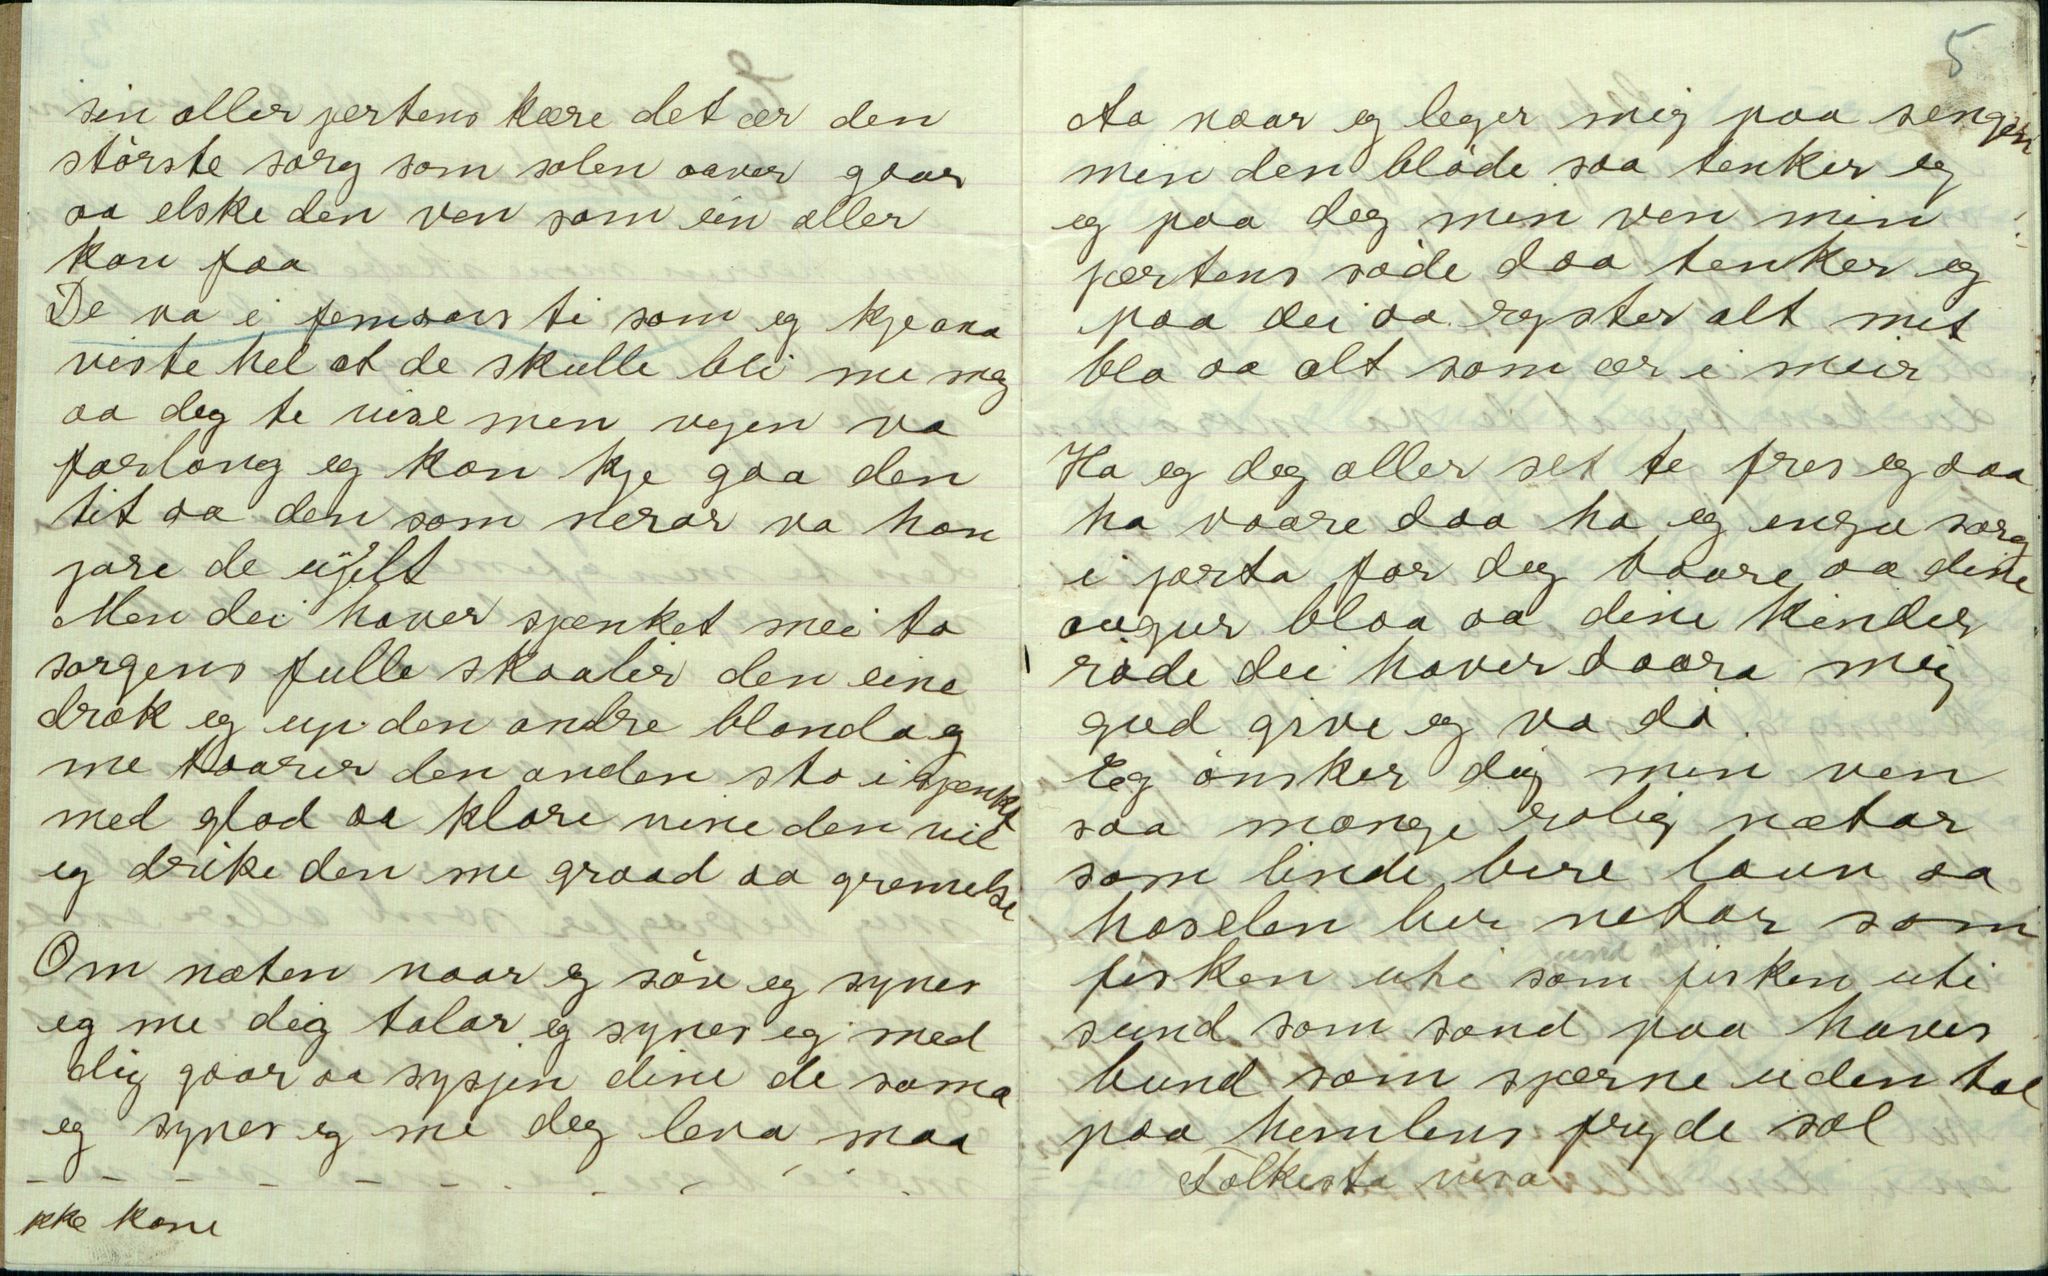 sin aller jertens kære det ær den
störste sorg som solen aaver gaar
aa elske den ven som ein aller
kan faa
De va i femaars ti som eg kje ana
viste hel at de skulle bli me meg
aa deg te vise men vejen va
forlang eg kan kje gaa den
tit aa den som nerar va han
jore de
Men dei haver sjænket mei to
sorgens fulle skaaler den eine
drak eg up den andre blanda eg
me taarer den anden sto i sjænka
med glad aa klare vine den vil
eg drike den me graad aa gremelse
Om næten naar eg söv eg synes
eg me dig talar eg synes eg med
dig gaar aa sysjen dine de sama
eg synes eg me deg leva maa
ikke kane
5
Aa naar eg leger mig paa sengen
min den blöde saa tenker eg
eg paa deg men ven min
jærtens söde daa tenker eg
paa dei aa ryster alt mit
blo aa alt som ær i meir
Ha eg deg aller set te fres eg daa
ha vaare daa ha eg engu sorg
i jærta for deg baare aa dine
augur blaa aa dine kinder
röde dei haver daara mig
gud give eg va dö
Eg önsker dig min ven
saa mange rolig nætar
som linde bere laun aa
haselen ber netar som
fisken uti som fisken uti
sund som sand paa haves
bund som sjærne uden tal
paa hemlens fryde sal
Folkesta visa